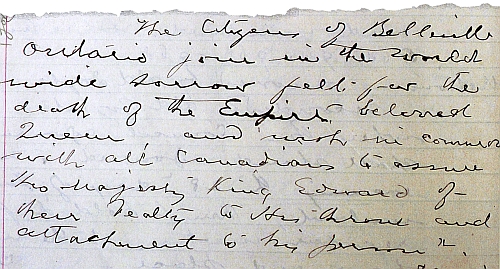 The Citizens of Belleville
Ontario join in the world
wide sorrow felt for the
death of the Empire's beloved
Queen and wish in common
with all Canadians to assure
His Majesty King Edward of
their fealty to His throne and
attachment to his person".